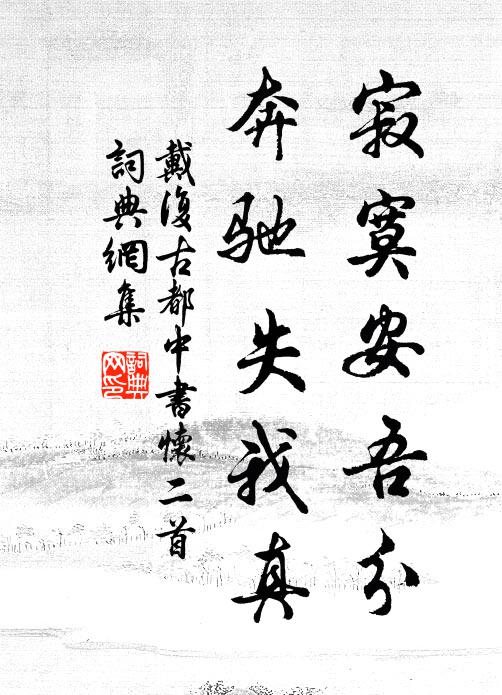 寂寞安吾分
奔馳失我真
戴復古都中書懷二首
詞典網集
詞典
网印